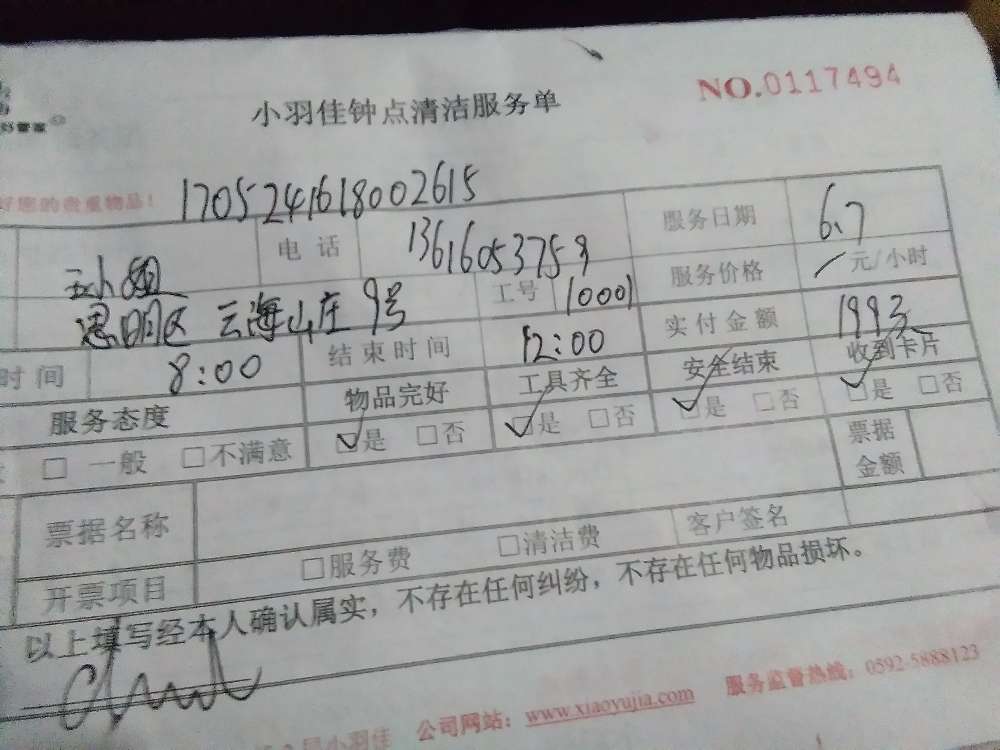 小羽佳钟点清洁服务单
NO.0117494
好您的贵重物品!
1705241618002615
电话 13616053753 服务日期 6.7
小姐
思明区 云海山庄 9号 工号 10001 服务价格 / 元/小时
时间 8:00 结束时间 12:00 实付金额 199元
服务态度 物品完好 工具齐全 安全结束 收到卡片
□ 一般 □不满意 ☑是 □否 ☑是 □否 ☑是 □否 ☑是 □否
票据名称 票据金额
开票项目 □服务费 □清洁费 客户签名
以上填写经本人确认属实，不存在任何纠纷，不存在任何物品损坏。
小羽佳 公司网站：www.xiaoyujia.com 服务监督热线：0592-5888123